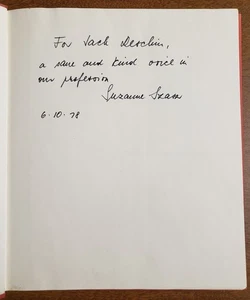 For Jack Deschin,
a sane and kind voice in
our profession
Suzanne Szasz
6·10·78